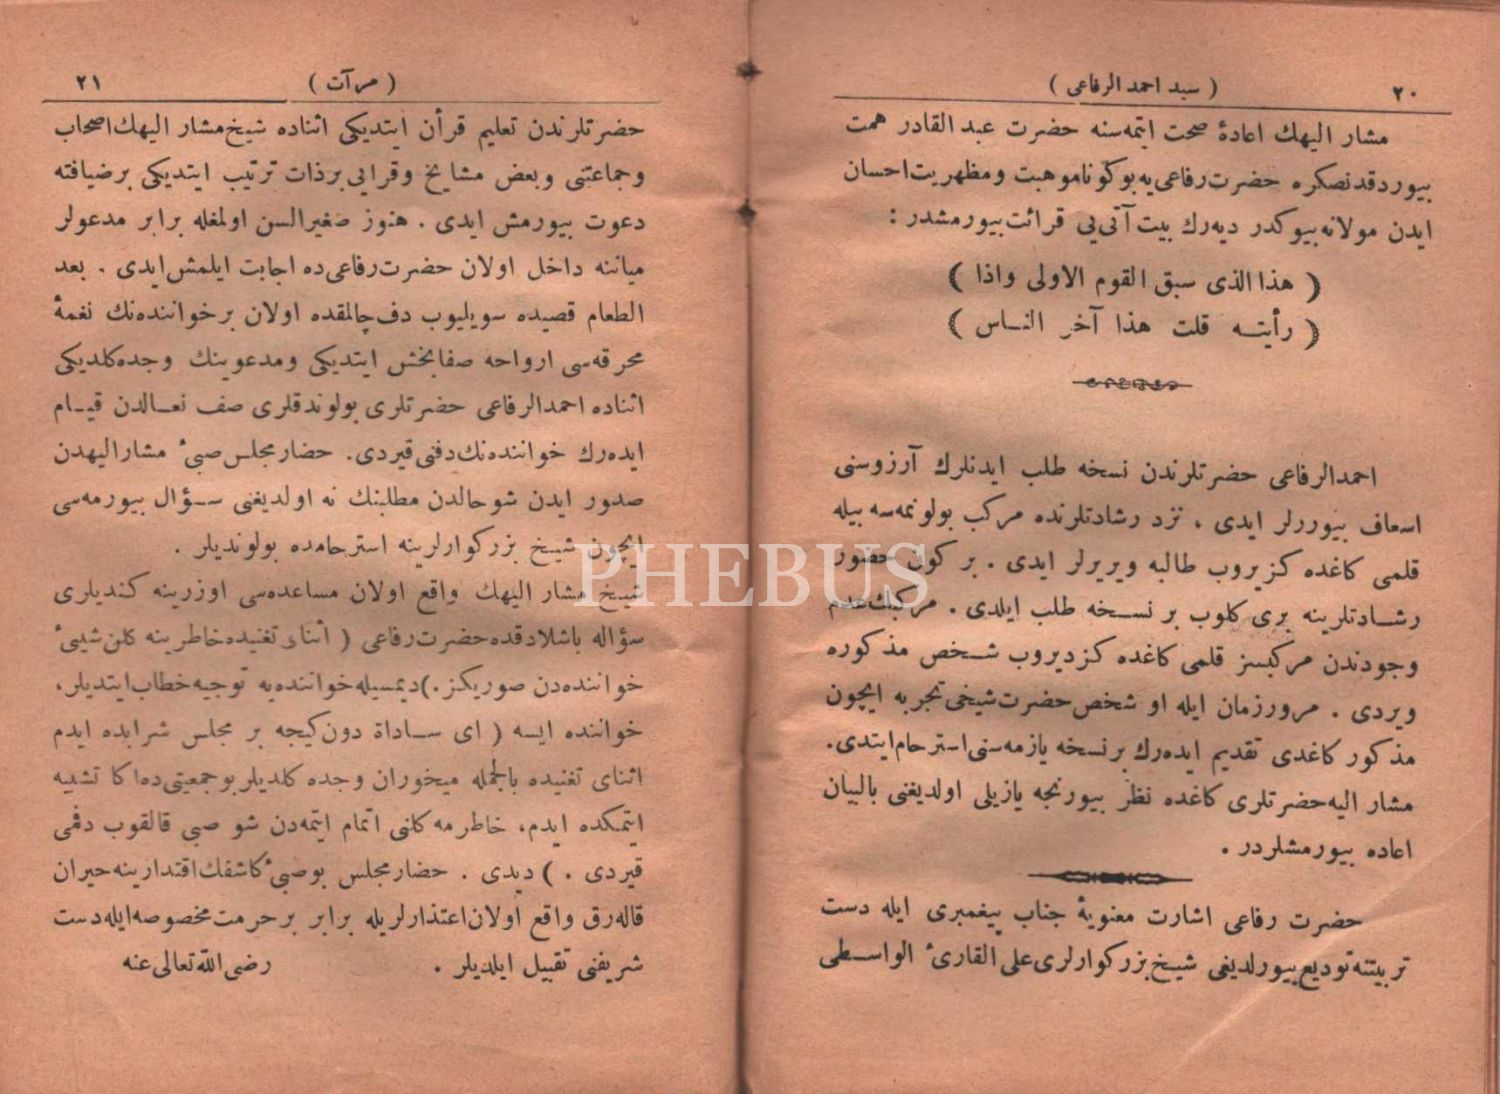 ٢٠ ( سيد احمد الرفاعى )
مشار اليهك اعادهٔ صحت ايتمه‌سنه حضرت عبد القادر همت
بيوردقدنصكره حضرت رفاعى‌يه بوكونا موهبت ومظهريت احسان
ايدن مولانه بيوكدر ديه‌رك بيت آتى‌يى قرائت بيورمشدر :
( هذا الذى سبق القوم الاولى واذا )
( رأيتــه قلت هذا آخر النــاس )
احمد الرفاعى حضرتلرندن نسخه طلب ايدنلرك آرزوسنى
اسعاف بيوررلر ايدى ، نزد رشادتلرنده مركب بولونمه‌سه بيله
قلمى كاغده كزيروب طالبه ويريرلر ايدى . بر كون حضور
رشــادتلرينه برى كلوب بر نســخه طلب ايلدى . مركبك عدم
وجودندن مركبسز قلمى كاغده كزديروب شــخص مذكوره
ويردى . مرور زمان ايله او شخص حضرت شيخى تجربه ايچون
مذكور كاغدى تقديم ايده‌رك بر نسخه يازمه‌سنى استرحام ايتدى.
مشار اليه حضرتلرى كاغده نظر بيورنجه يازيلى اولديغنى بالبيان
اعاده بيورمشلردر .
حضرت رفاعى اشارت معنويهٔ جناب پيغمبرى ايله دست
تربيتنه توديع بيورلديغى شيــخ بزركوارلرى على القارىٔ الواســطى
٢١ ( مرآت )
حضرتلرندن تعليم قرأن ايتديكى اثناده شيخ مشار اليهك اصحاب
وجماعتنى وبعض مشايخ وقرايى برذات ترتيب ايتديكى برضيافته
دعوت بيورمش ايدى . هنوز صغيرالسن اولمغله برابر مدعولر
مياننه داخل اولان حضرت رفاعى‌ده اجابت ايلمش ايدى . بعد
الطعام قصيده سويليوب دف چالمقده اولان برخواننده‌نك نغمهٔ
محرقه‌سى ارواحه صفابخش ايتديكى ومدعوينك وجده كلديكى
اثناده احمد الرفاعى حضرتلرى بولوندقلرى صف نعــالدن قيــام
ايده‌رك خواننده‌نك دفنى قيردى. حضار مجلس صبىٔ مشار اليهدن
صدور ايدن شو حالدن مطلبنك نه اولديغنى ســؤال بيورمه‌سى
ايچون شيــخ بزركوارلرينه استرحامده بولونديلر .
شيــخ مشار اليهك واقع اولان مساعده‌سى اوزرينه كنديلرى
سؤاله باشلادقده حضرت رفاعى ( اثناى تغنيده خاطرينه كلن شيئىٔ
خواننده‌دن صوريكز.)ديمسيله خواننده‌يه توجيه خطاب ايتديلر.
خواننده ايسه ( اى ســاداة دون كيجه بر مجلس شرابده ايدم
اثناى تغنيده بالجمله ميخوران وجده كلديلر بو جمعيتى ده‌ا كا تشبيه
ايتمكده ايدم، خاطرمه كلنى اتمام ايتمه‌دن شو صبى قالقوب دفمى
قيردى . ) ديدى . حضار مجلس بو صبىٔ كاشفك اقتدارينه حيران
قاله‌رق واقع اولان اعتذارلريله برابر بر حرمت مخصوصه ايله دست
شريفنى تقبيل ايلديلر . رضى الله تعالى عنه
PHEBUS